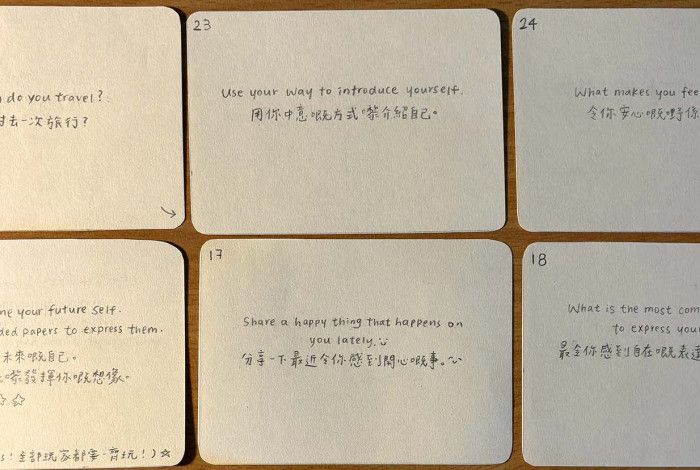 do you travel?
去一次旅行?
23
Use your way to introduce yourself.
用你中意嘅方式嚟介紹自己。
24
What makes you fee
令你安心嘅嘢係
ne your future self.
ded papers to express them.
未來嘅自己。
嚟發揮你嘅想像。
☆
s! 全部玩家都要一齊玩!)☆
17
Share a happy thing that happens on
you lately.
分享一下最近令你感到開心嘅事。
18
What is the most com
to express you
最令你感到自在嘅表達